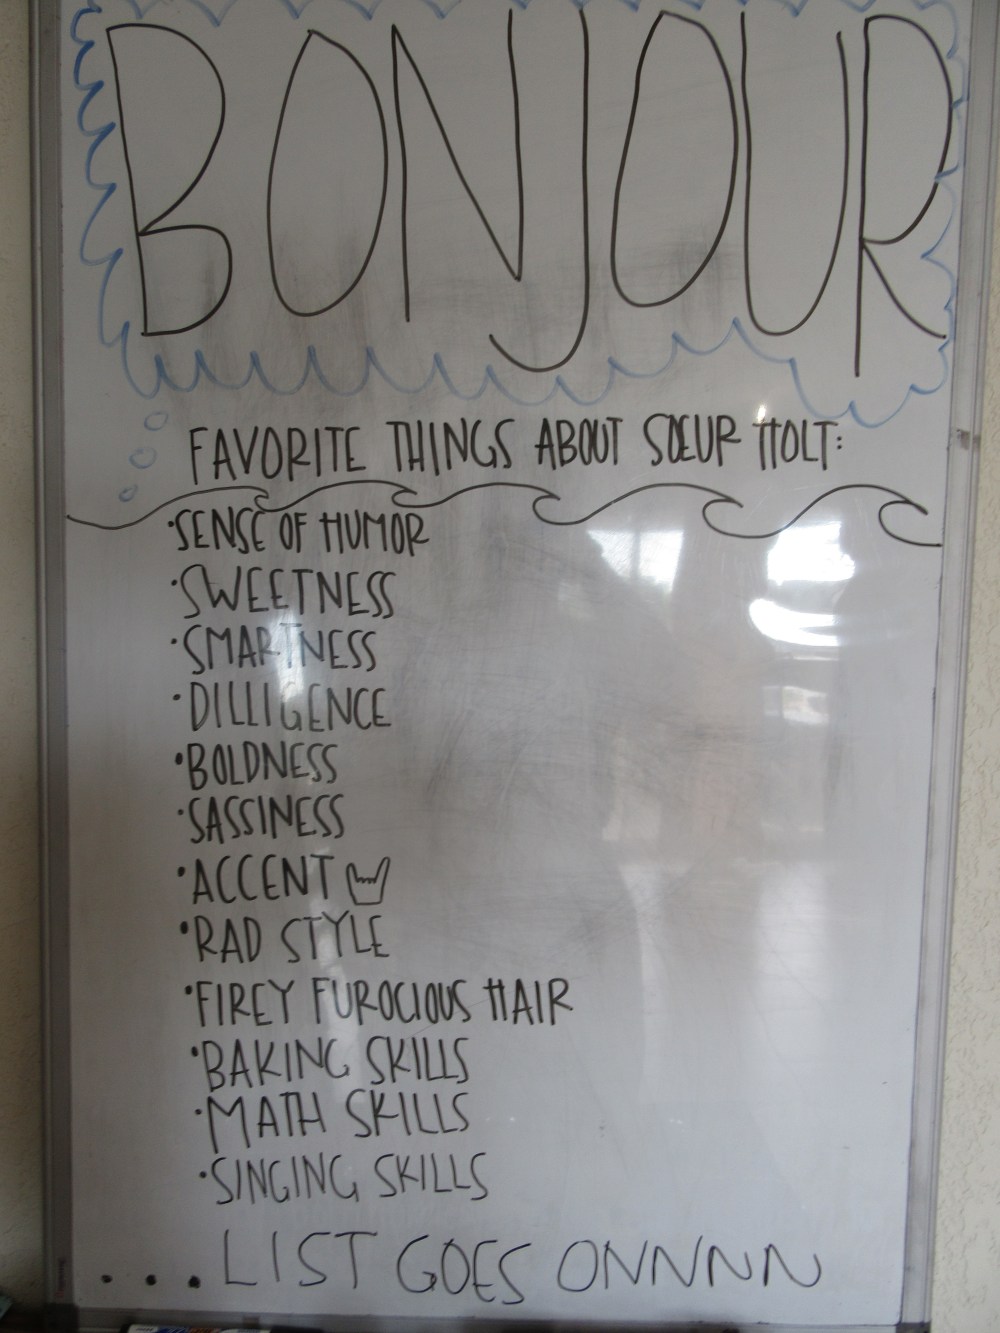 BONJOUR
FAVORITE THINGS ABOUT SŒUR HOLT:
•SENSE OF HUMOR
•SWEETNESS
•SMARTNESS
•DILLIGENCE
•BOLDNESS
•SASSINESS
•ACCENT
•RAD STYLE
•FIREY FUROCIOUS HAIR
•BAKING SKILLS
•MATH SKILLS
•SINGING SKILLS
...LIST GOES ONNNN